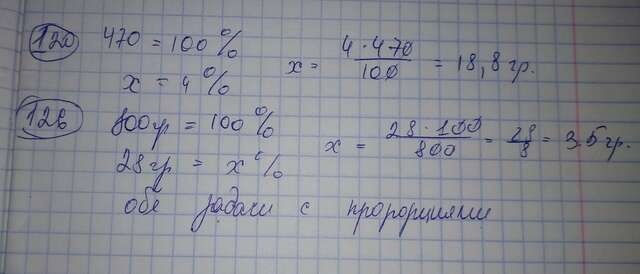 120 470 = 100 % x = 4 · 470 / 100 = 18,8 гр.
x = 4 %
126 800 гр = 100 % x = 28 · 100 / 800 = 28 / 8 = 3.5 гр.
28 гр = x %
обе задачи с пропорциями